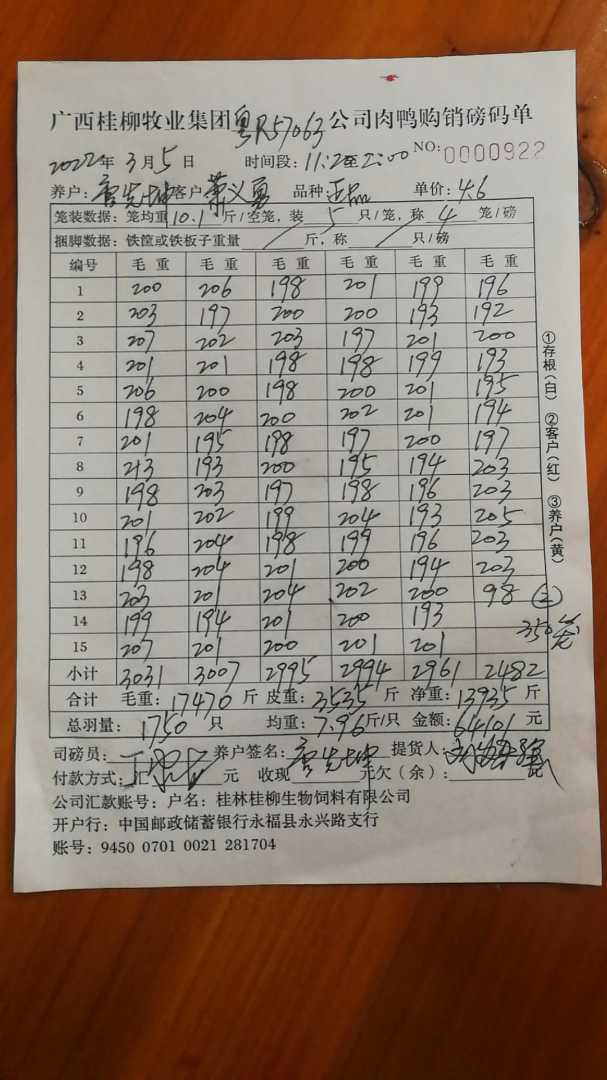 广西桂柳牧业集团粤R57063公司肉鸭购销磅码单
2022年3月5日 时间段:11:2至2:00 NO:0000922
养户: 客户:萧义勇 品种:正品 单价:4.6
笼装数据:笼均重10.1斤/空笼,装5只/笼,称4笼/磅
捆脚数据:铁筐或铁板子重量 斤,称 只/磅
编号 毛重 毛重 毛重 毛重 毛重 毛重
1 200 206 198 201 199 196
2 203 197 200 200 193 192
3 207 202 203 197 201 200
4 201 201 198 198 199 193
5 206 200 198 200 201 195
6 198 204 200 202 201 194
7 201 195 198 197 200 197
8 213 193 200 195 194 203
9 198 203 197 198 196 203
10 201 202 199 204 193 205
11 196 204 198 199 196 203
12 198 204 201 200 194 203
13 203 201 204 202 200 98 ②
14 199 194 201 200 193
350笼
15 207 201 200 201 201
小计 3031 3007 2995 2994 2961 2482
合计 毛重:17470斤 皮重:3535斤 净重:13935斤
总羽量:1750只 均重:7.96斤/只 金额:64101元
司磅员: 养户签名: 提货人:
付款方式:汇 元 收现 元欠(余):
公司汇款账号:户名:桂林桂柳生物饲料有限公司
开户行:中国邮政储蓄银行永福县永兴路支行
账号:9450 0701 0021 281704
①存根(白) ②客户(红) ③养户(黄)